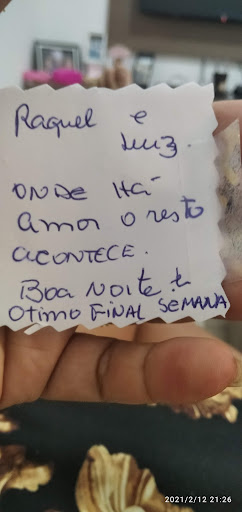 Raquel e
Luiz.
ONDE HÁ
Amor o resto
ACONTECE.
Boa NoITE &
OTIMO FINAL SEMANA
2021/2/12 21:26